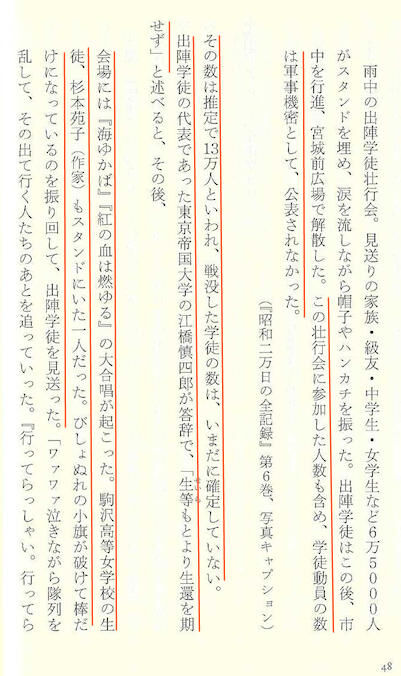 雨中の出陣学徒壮行会。見送りの家族・級友・中学生・女学生など6万5000人
がスタンドを埋め、涙を流しながら帽子やハンカチを振った。出陣学徒はこの後、市
中を行進、宮城前広場で解散した。この壮行会に参加した人数も含め、学徒動員の数
は軍事機密として、公表されなかった。
（『昭和二万日の全記録』第6巻、写真キャプション）
その数は推定で13万人といわれ、戦没した学徒の数は、いまだに確定していない。
出陣学徒の代表であった東京帝国大学の江橋慎四郎が答辞で、「生等もとより生還を期
せいら
せず」と述べると、その後、
会場には『海ゆかば』『紅の血は燃ゆる』の大合唱が起こった。駒沢高等女学校の生
徒、杉本苑子（作家）もスタンドにいた一人だった。びしょぬれの小旗が破けて棒だ
けになっているのを振り回して、出陣学徒を見送った。「ワァワァ泣きながら隊列を
乱して、その出て行く人たちのあとを追っていった。『行ってらっしゃい。行ってら
48